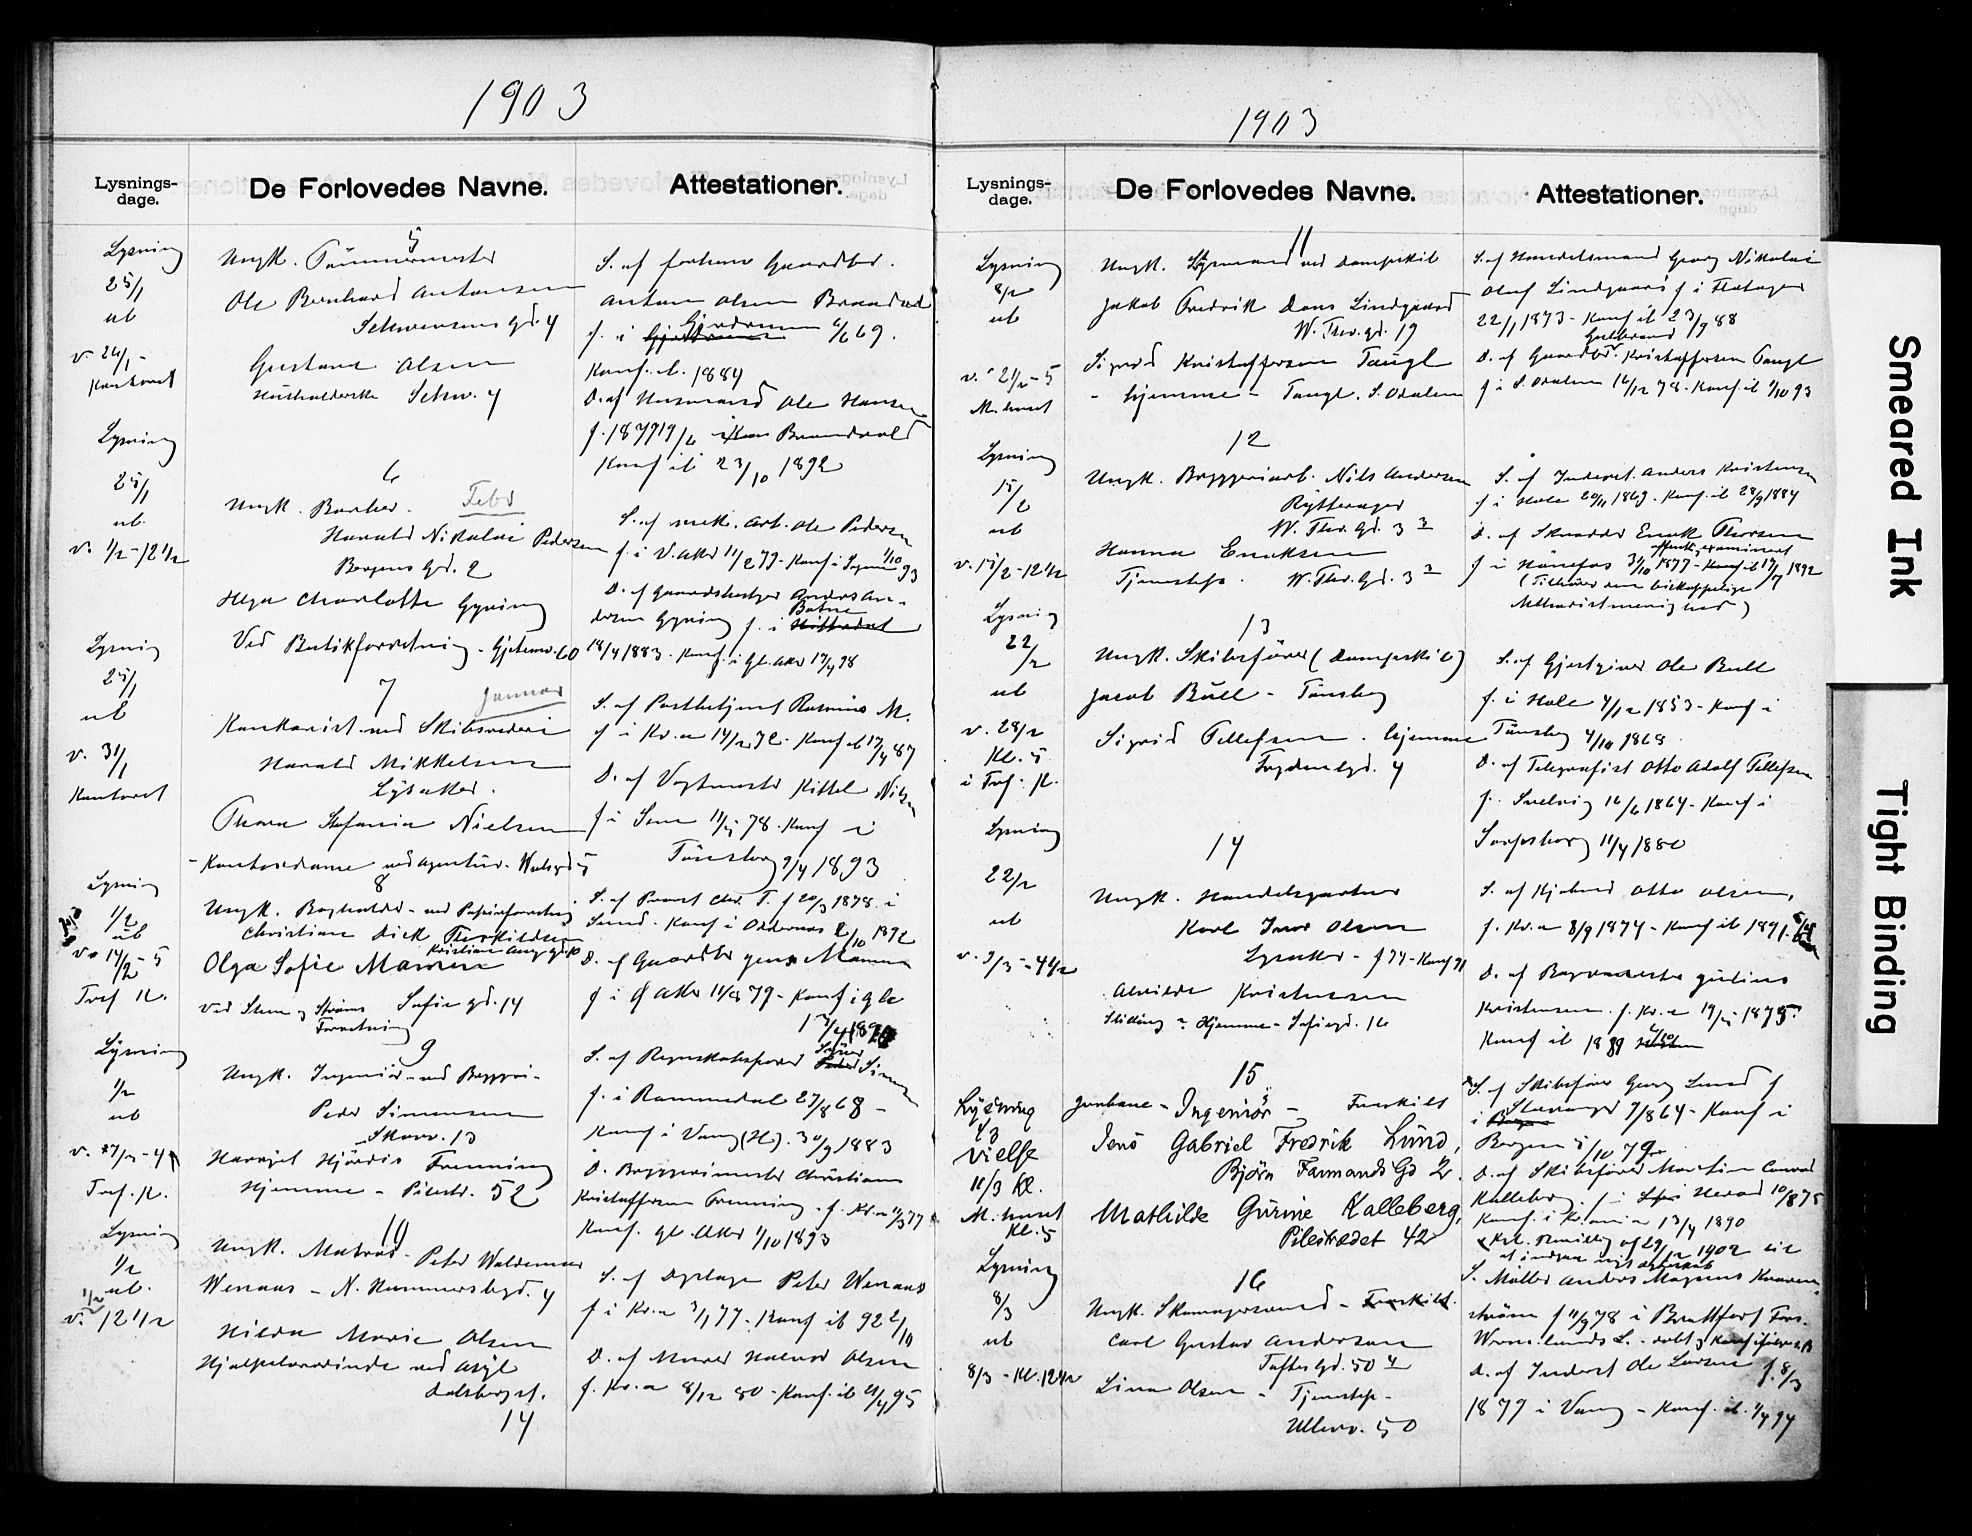 1903
Lysnings-
dage.
De Forlovedes Navne.
Attestationer.
Lysning
25/1
ub
v. 24/1 -
Kontoret
5
Ungk. Tømmermester
Ole Bernhard Antonsen
Schwensens gd. 4
Gustava Olsen
Husholderske Schw. 4
S. af forhenv. Gaardbr.
Anton Olsen
f. i 69.
Konf. ib. 1884
D. af Husmand Ole Hansen
f. 1877 19/6
Konf ib 23/10 1892
Lysning
25/1
ub.
v. 1/2 - 12 1/2
6
Ungk. Barber. Febr
Harald Nikolai Pedersen
Bergens gd. 2
Helga Charlotte Gyning
Ved Butikforretning - 60
S. af mek. Arb. Ole Pedersen
f. i V. Aker 11/2 77 - Konf i 1/10 93
D. af Gaardbestyrer Anders An-
dersen Gyning f. i Botne
18/4 1883 - Konf. i Gl. Aker 17/4 98
Lysning
25/1
ub
v. 31/1
Kontoret
7
Januar
Kontorist ved Skibsrederi
Harald Mikkelsen
Lysaker.
Thora Stefania Nielsen
- Kontordame ved Agentur -
S. af Postbetjent Rasmus M.
f i Kr.a 14/12 72 - Konf ib 17/4 87
D. af Vogtmester Kittel Nilsen
f i Sem 78 - Konf i
Tønsberg 9/4 1893
Lysning
1/2
ub
v. 14/2 - 5
Tref. K.
8
Ungk. Bogholder - ved Papirforretning
Christian Dick Therkildsen
Kristian Aug. gd.
Olga Sofie Mamen
Ved Forretning Sofie gd. 14
S. af Provst Chr. T. f 20/3 1878 i
Sund. Konf i Oddernes 2/10 1892
D. af Gaardbr Jens Mamen
f i Ø Aker 79 - Konf i Gl.
Lysning
1/2
ub
v. 27/2 - 4
Tref. K.
9
Ungk. Ingeniør - ved Bryggeri -
Peder Simensen
Skovv. 13
Hjørdis Frenning
Hjemme - Pilestr. 52
S. af Regnskabsfører Simensen
f. i Rommedal 27/8 68 -
Konf i Vang (H.) 30/9 1883
D. Bryggerimester Christian
Kristoffersen Frenning. f. Kr.a 77
Konf. gl. Aker 1/10 1893
Lysning
1/2
ub.
v. 1/2 12 1/2
10
Ungk. Matros - Peter Waldemar
Wenaas - N. Hammersbgd. 4
Hilda Marie Olsen
Hjælpelærerinde ved Asyl
Dalsbergst.
14
S. af Peter Wenaas
f i Kr.a 3/1 77 - Konf ib 92 2/10
D. af Murer Halvor Olsen
f. Kr.a 8/12 80 - Konf. ib 21/4 95
1903
Lysnings-
dage.
De Forlovedes Navne.
Attestationer.
Lysning
8/2
ub
v. 21/2 - 5
M. huset
11
Ungk. Styrmand ved Dampskib
Jakob Fredrik Dons Lindgaard
W. Thr. gd. 19
Sigrid Kristoffersen Taugl
- hjemme - Taugl. S. Odalen
S. af Handelsmand Georg Nikolai
Oluf Lindgaard f i Flatanger
22/1 1873 - Konf ib 23/9 88
D. af Gaardbr. Gulbrand Kristoffersen Taugl
f i S. Odalen 16/12 78 - Konf ib 1/10 93
Lysning
15/2
ub
v. 15/2 - 12 1/2
12
Ungk. Bryggeriarb. Nils Andersen
Rytterager
W. Thr. gd. 33
Hanna Enoksen
Tjenestepi. W. Thr. Gd. 33
S. af Inderst. Anders Kristensen
f i Hole 20/11 1863 - Konf. ib 28/9 1884
D. af Skrædder Enok Thorsen
f i Hønefos 3/10 1877 - offentl. examinert 17/7 1892
(Tilhører den biskoppelige
Methodistmenighed)
Lysning
22/2
ub
v. 28/2
Kl. 5
i Tref. K.
13
Ungk. Skibsfører (Dampskib)
Jacob Bull - Tønsberg
Sigrid Tellefsen - hjemme
Frydenlgd. 4
S. af Gjestgiver Ole Bull
f. i Hole 4/12 1853 - Konf i
Tønsberg 4/10 1868
D. af Telegrafist Otto Adolf Tellefsen
f. Svelvig 16/6 1864 - Konf i
Sarpsborg 11/4 1880
Lysning
22/2
ub
v. 3/3 - 4 1/2
14
Ungk. Handelsgartner
Karl Ivar Olsen
Lysaker - f 74 - Konf 91
Alvilde Kristensen
Stilling - Hjemme - Sofiegd. 16
S. af Otto Olsen,
f. Kr.a 8/9 1874 - Konf ib 1891
D. af Bogvæster Julius
Kristensen f. Kr.a 1875.
Konf ib 1889
Lysning
vielse
11/3 Kl.
M. huset
Kl. 5
15
Ingeniør - Fraskilt
Jens Gabriel Fredrik Lund,
Bjørn Farmands Gd 2.
Mathilde Gurine Kalleberg,
Pilestrædet 42
S. af Skibsfører Georg Lund f
i Stavanger 7/8 64 - Konf i
Bergen 5/10 79
D. af Skibsfører Martin Conrad
Kalleberg. f i Herad 10/8 75
Konf. i Kr.ania 13/4 1890
Kgl. Bevilling af 29/12 1902 til
at indgaa nyt ægteskab
Lysning
8/3
ub
8/3 - Kl. 12 1/2
16
Ungk. Skomagersvend - Fraskilt.
Carl Gustav Anderson
Toftes gd. 50
Lina Olsen - Tjenestepi -
Ullevv. 50
S. Møller Anders Magnus
strøm f 11/9 78 i Brattfors Fors.
Wermlands L. - døbt & Konf
D. af Inderst Ole Larsen f. 8/3
1879 i Vang - Konf. ib. 94
Smeared Ink
Tight Binding